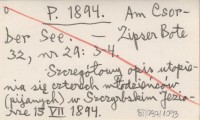 P. 1894. Am Csor-
ber See. — Zipser Bote
32, nr 29: 3-4.
Szczegółowy opis utopie-
nia się czterech młodzieńców
(pijanych) w Szczyrbskim Jezio-
rze 15 VII 1894.